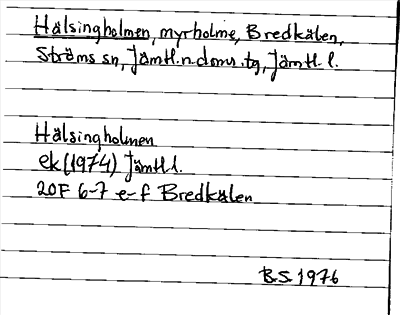 Hälsingholmen, myrholme, Bredkälen,
Ströms sn, Jämtl. n. doms. tg, Jämtl. l.
Hälsingholmen
ek (1974) Jämtl l.
20F 6-7 e-f Bredkälen
B.S. 1976